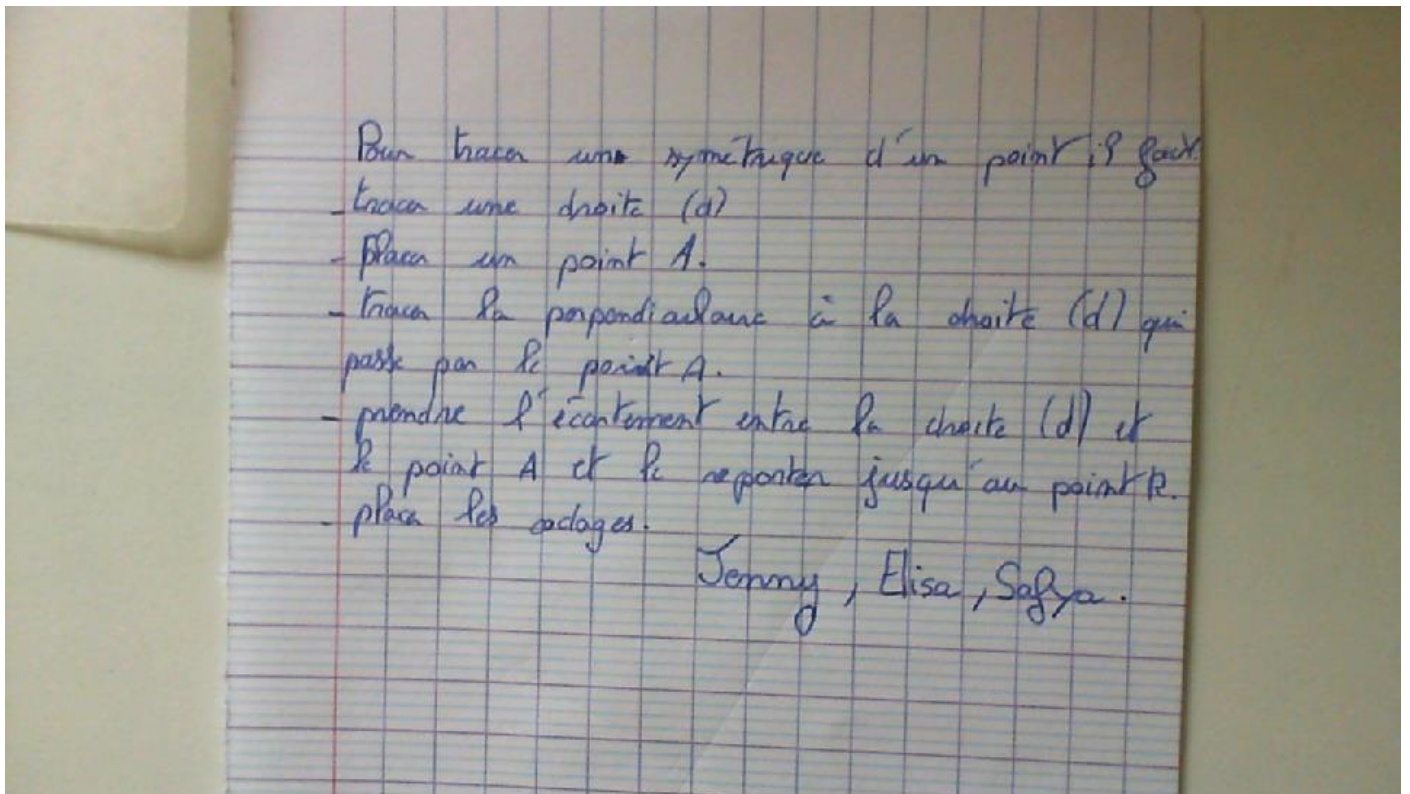 Pour tracer une symétrique d'un point, il faut
- tracer une droite (d)
- placer un point A.
- tracer la perpendiculaire à la droite (d) qui
passe par le point A.
- prendre l'écartement entre la droite (d) et
le point A et le reporter jusqu'au point R.
- placer les codages.
Jenny, Elisa, Safya.